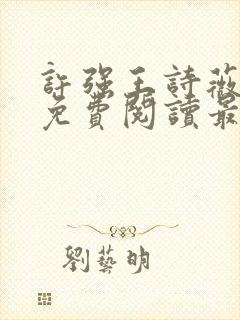 許強王詩薇
免費閱讀最
劉藝明